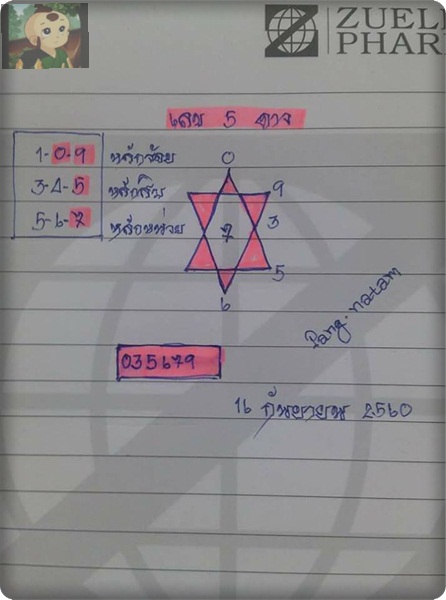 ZUELL
PHAR
เลข 5 ดาว
1-0-9 หลักร้อย
3-4-5 หลักสิบ
5-6-7 หลักหน่วย
0
9
3
7
5
6
Pang.natam
035679
16 กันยายน 2560